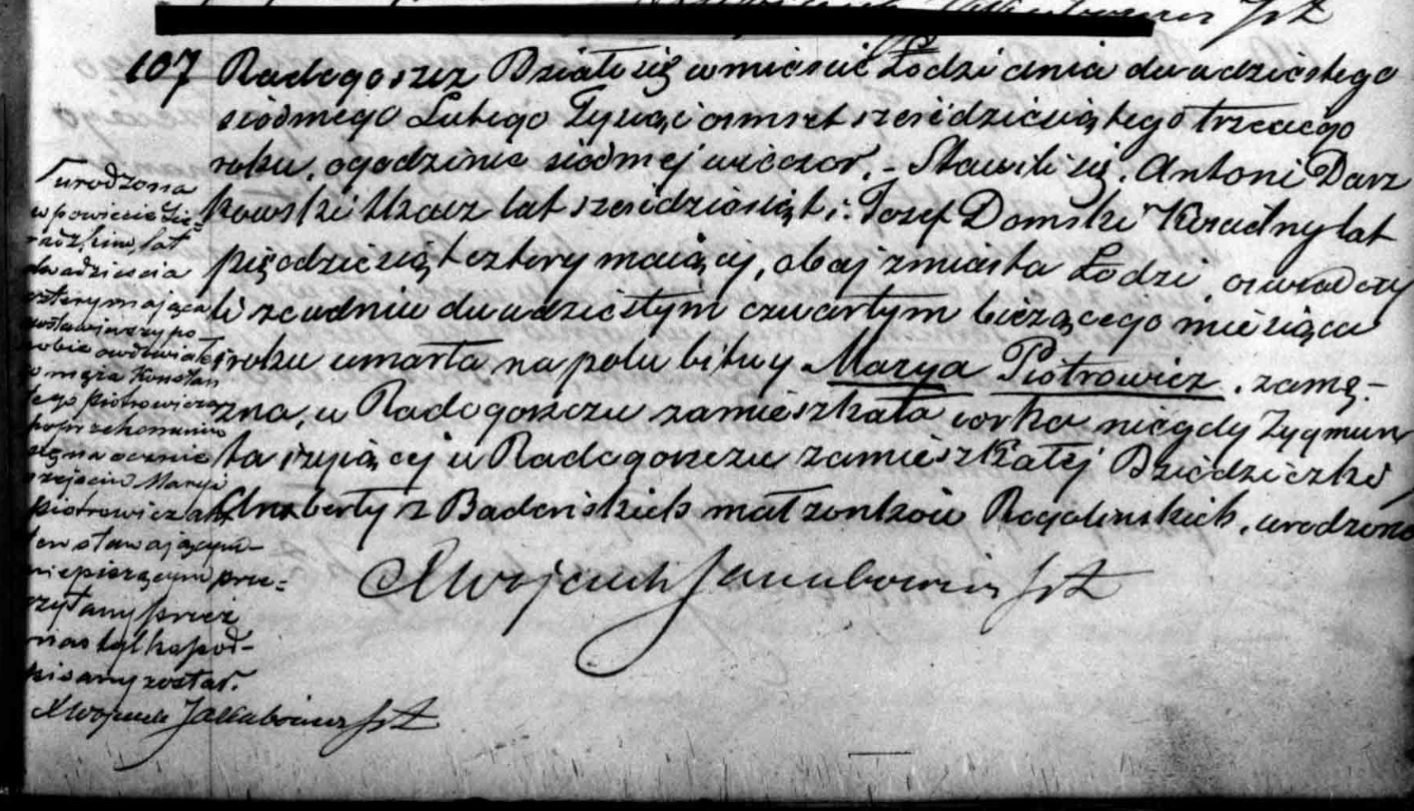 107 Radogoszcz Działo się w mieście Łodzi dnia dwudziestego
siódmego Lutego Tysiąc ośmset sześćdziesiątego trzeciego
roku, o godzinie siódmej wieczór. – Stawili się, Antoni Darz
kowski tkacz lat sześćdziesiąt i Józef Domski Kościelny lat
pięćdziesiąt cztery mający, obaj z miasta Łodzi, oświadczy
li że w dniu dwudziestym czwartym bieżącego miesiąca
i roku umarła na polu bitwy Marya Piotrowicz, zamę–
żna, w Radogoszczu zamieszkała córka niegdy Zygmun
ta i żyjącej w Radogoszczu zamieszkałej Dziedziczki
z Badeńskich małżonków Rogolińskich, urodzona
X Wojciech Jakubowicz
urodzona
w powiecie Sie–
radzkim, lat
dwadzieścia
cztery mająca
zostawiwszy po
sobie owdowiałe
go męża Konstan
tego Piotrowicza
po przekonaniu
się naocznie
o zejściu Maryi
Piotrowicz akt
ten stawającym
niepiszącym prze–
czytany przez
nas tylko pod–
pisany został.
X Wojciech Jakubowicz